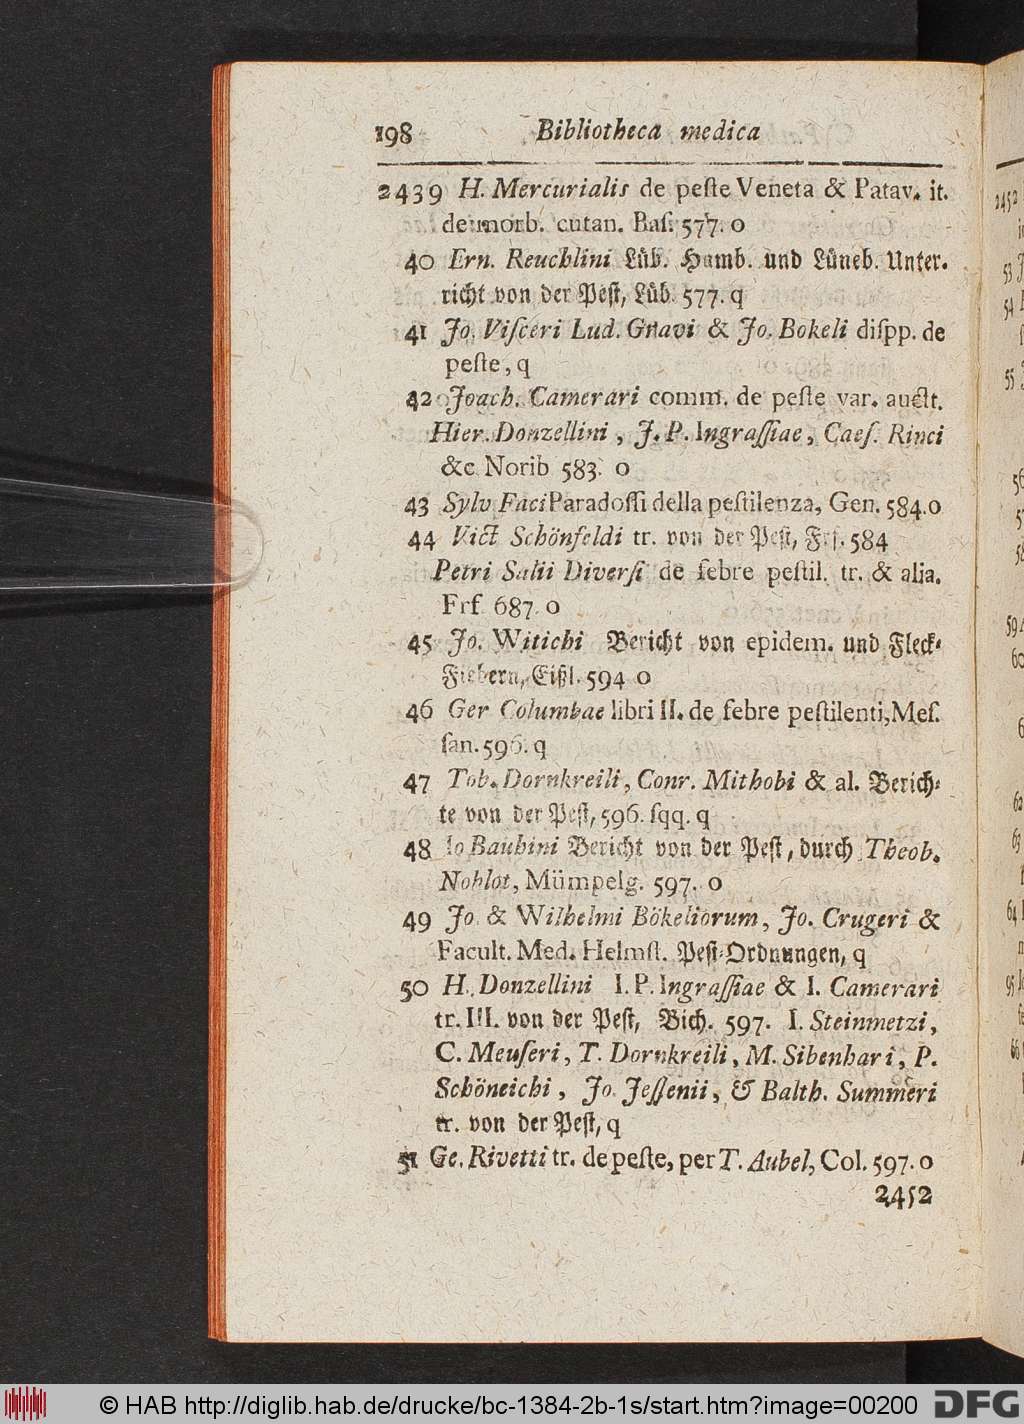 198 Bibliotheca medica
2439 H. Mercurialis de peſte Veneta & Patav. it.
de morb. cutan. Baſ. 577. o
40 Ern. Reuchlini Lüb. Hamb. und Lüneb. Unter-
richt von der Peſt, Lüb. 577. q
41 Jo. Viſceri Lud. Gnavi & Jo. Bokeli diſpp. de
peſte, q
42 Joach. Camerari comm. de peſte var. auct.
Hier. Donzellini, J. P. Ingraſſiae, Caeſ. Rinci
&c Norib 583. o
43 Sylv Faci Paradoſſi della peſtilenza, Gen. 584. o
44 Vict Schönfeldi tr. von der Peſt, Frf. 584
Petri Salii Diverſi de febre peſtil. tr. & alia.
Frf 687. o
45 Jo. Witichi Bericht von epidem. und Fleck-
Fiebern, Eißl. 594 o
46 Ger Columbae libri II. de febre peſtilenti, Meſ.
ſan. 596. q
47 Tob. Dornkreili, Conr. Mithobi & al. Berich-
te von der Peſt, 596. ſqq. q
48 Io Bauhini Bericht von der Peſt, durch Theob.
Noblot, Mümpelg. 597. o
49 Jo. & Wilhelmi Bökeliorum, Jo. Crugeri &
Facult. Med. Helmſt. Peſt-Ordnungen, q
50 H. Donzellini I. P. Ingraſſiae & I. Camerari
tr. III. von der Peſt, Bich. 597. I. Steinmetzi,
C. Meuſeri, T. Dornkreili, M. Sibenhari, P.
Schöneichi, Jo. Jeſſenii, & Balth. Summeri
tr. von der Peſt, q
51 Ge. Rivetti tr. de peſte, per T. Aubel, Col. 597. o
2452
© HAB http://diglib.hab.de/drucke/bc-1384-2b-1s/start.htm?image=00200 DFG